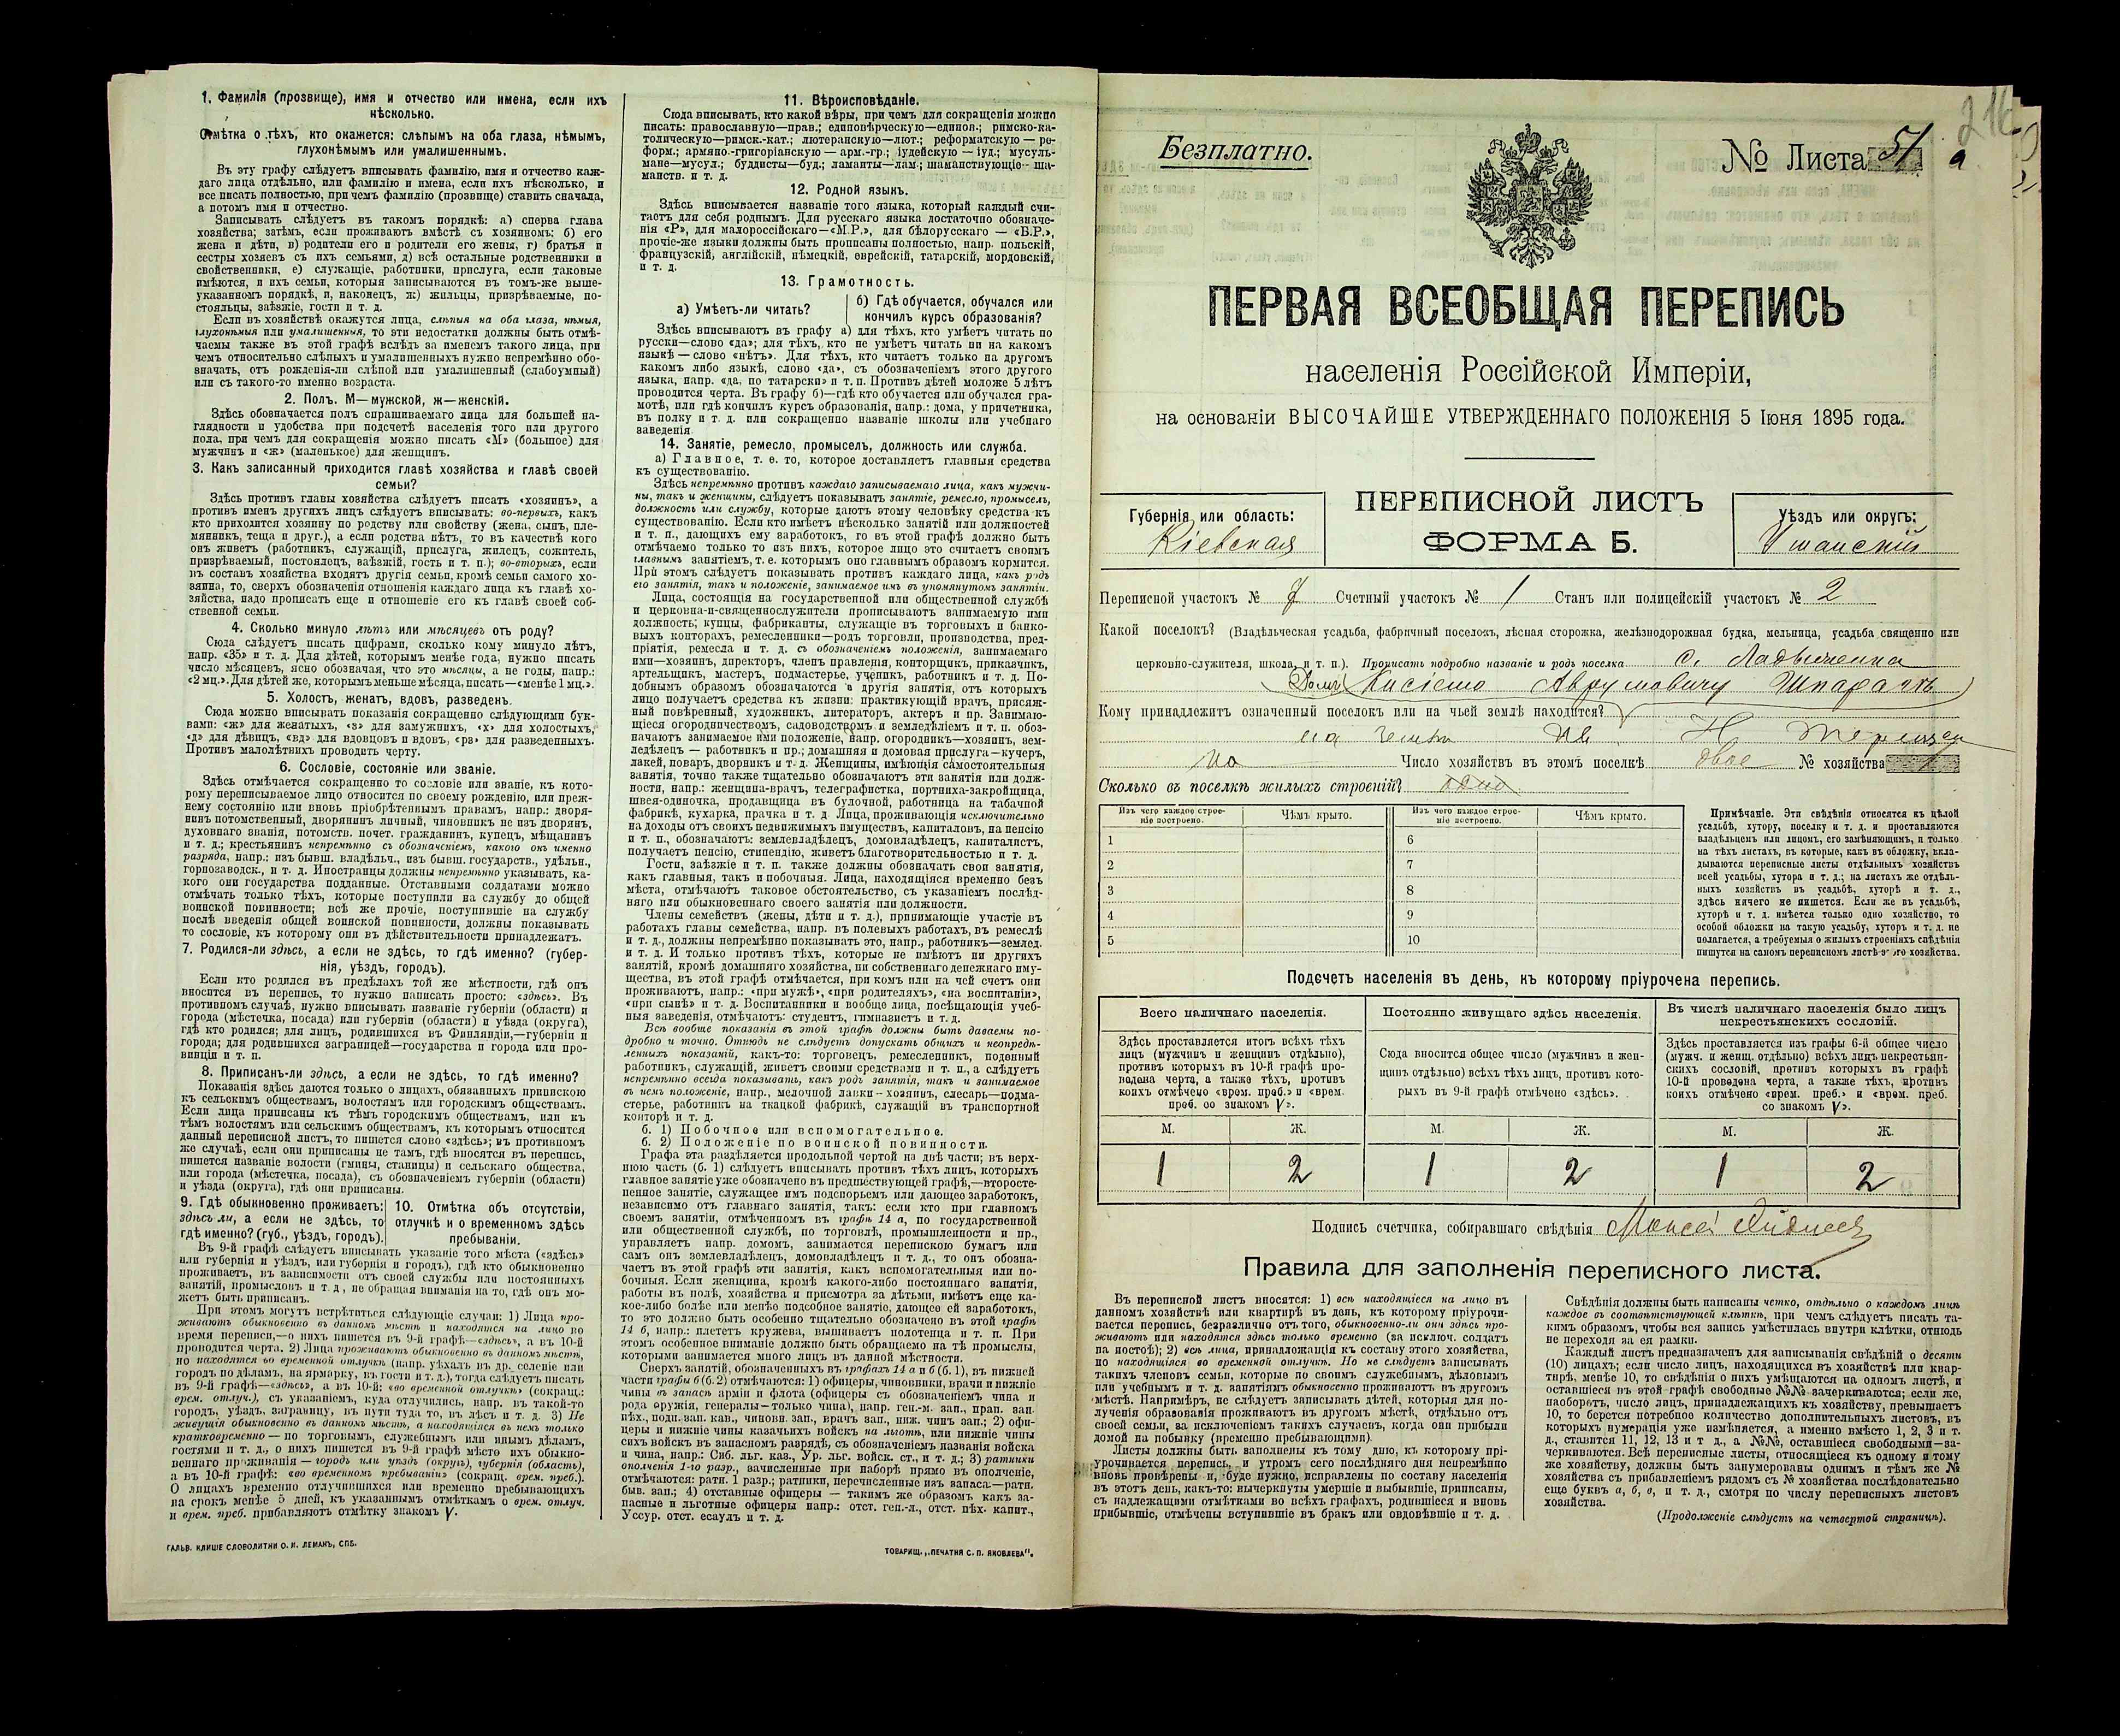 1. Фамилія (прозвище), имя и отчество или имена, если ихъ
нѣсколько.
Отмѣтка о тѣхъ, кто окажется: слѣпымъ на оба глаза, нѣмымъ,
глухонѣмымъ или умалишеннымъ.
Въ эту графу слѣдуетъ вписывать фамилію, имя и отчество каж-
даго лица отдѣльно, или фамилію и имена, если ихъ нѣсколько, и
все писать полностью, при чемъ фамилію (прозвище) ставить сначала,
а потомъ имя и отчество.
Записывать слѣдуетъ въ такомъ порядкѣ: а) сперва глава
хозяйства; затѣмъ, если проживаютъ вмѣстѣ съ хозяиномъ: б) его
жена и дѣти, в) родители его и родители его жены, г) братья и
сестры хозяевъ съ ихъ семьями, д) всѣ остальные родственники и
свойственники, е) служащіе, работники, прислуга, если таковые
имѣются, и ихъ семьи, которыя записываются въ томъ-же выше-
указанномъ порядкѣ, и, наконецъ, ж) жильцы, призрѣваемые, по-
стояльцы, заѣзжіе, гости и т. д.
Если въ хозяйствѣ окажутся лица, слѣпыя на оба глаза, нѣмыя,
глухонѣмыя или умалишенныя, то эти недостатки должны быть отмѣ-
чаемы также въ этой графѣ вслѣдъ за именемъ такого лица, при
чемъ относительно слѣпыхъ и умалишенныхъ нужно непремѣнно обо-
значать, отъ рожденія-ли слѣпой или умалишенный (слабоумный)
или съ такого-то именно возраста.
2. Полъ. М— мужской, ж—женскій.
Здѣсь обозначается полъ спрашиваемаго лица для большей на-
глядности и удобства при подсчетѣ населенія того или другого
пола, при чемъ для сокращенія можно писать «М» (большое) для
мужчинъ и «ж» (маленькое) для женщинъ.
3. Какъ записанный приходится главѣ хозяйства и главѣ своей
семьи?
Здѣсь противъ главы хозяйства слѣдуетъ писать «хозяинъ», а
противъ именъ другихъ лицъ слѣдуетъ вписывать: во-первыхъ, какъ
кто приходится хозяину по родству или свойству (жена, сынъ, пле-
мянникъ, теща и друг.), а если родства нѣтъ, то въ качествѣ кого
онъ живетъ (работникъ, служащій, прислуга, жилецъ, сожитель,
призрѣваемый, постоялецъ, заѣзжій, гость и т. п.); во-вторыхъ, если
въ составъ хозяйства входятъ другія семьи, кромѣ семьи самого хо-
зяина, то, сверхъ обозначенія отношенія каждаго лица къ главѣ хо-
зяйства, надо прописать еще и отношеніе его къ главѣ своей соб-
ственной семьи.
4. Сколько минуло лѣтъ или мѣсяцевъ отъ роду?
Сюда слѣдуетъ писать цифрами, сколько кому минуло лѣтъ,
напр. «35» и т. д. Для дѣтей, которымъ менѣе года, нужно писать
число мѣсяцевъ, ясно обозначая, что это мѣсяцы, а не годы, напр.:
«2 мц.». Для дѣтей же, которымъ меньше мѣсяца, писать—«менѣе 1 мц.».
5. Холостъ, женатъ, вдовъ, разведенъ.
Сюда можно вписывать показанія сокращенно слѣдующими бук-
вами: «ж» для женатыхъ, «з» для замужнихъ, «х» для холостыхъ,
«д» для дѣвицъ, «вд» для вдовцовъ и вдовъ, «рз» для разведенныхъ.
Противъ малолѣтнихъ проводить черту.
6. Сословіе, состояніе или званіе.
Здѣсь отмѣчается сокращенно то сословіе или званіе, къ кото-
рому переписываемое лицо относится по своему рожденію, или преж-
нему состоянію или вновь пріобрѣтеннымъ правамъ, напр.: дворя-
нинъ потомственный, дворянинъ личный, чиновникъ не изъ дворянъ,
духовнаго званія, потомств. почет. гражданинъ, купецъ, мѣщанинъ
и т. д.; крестьянинъ непремѣнно съ обозначеніемъ, какого онъ именно
разряда, напр.: изъ бывш. владѣльч., изъ бывш. государств., удѣльн.,
горнозаводск., и т. д. Иностранцы должны непремѣнно указывать, ка-
кого они государства подданные. Отставными солдатами можно
отмѣчать только тѣхъ, которые поступили на службу до общей
воинской повинности; всѣ же прочіе, поступившіе на службу
послѣ введенія общей воинской повинности, должны показывать
то сословіе, къ которому они въ дѣйствительности принадлежатъ.
7. Родился-ли здѣсь, а если не здѣсь, то гдѣ именно? (губер-
нія, уѣздъ, городъ).
Если кто родился въ предѣлахъ той же мѣстности, гдѣ онъ
вносится въ перепись, то нужно написать просто: «здѣсь». Въ
противномъ случаѣ, нужно вписывать названіе губерніи (области) и
города (мѣстечка, посада) или губерніи (области) и уѣзда (округа),
гдѣ кто родился; для лицъ, родившихся въ Финляндіи,—губерніи и
города; для родившихся заграницей—государства и города или про-
винціи и т. п.
8. Приписанъ-ли здѣсь, а если не здѣсь, то гдѣ именно?
Показанія здѣсь даются только о лицахъ, обязанныхъ припискою
къ сельскимъ обществамъ, волостямъ или городскимъ обществамъ.
Если лица приписаны къ тѣмъ городскимъ обществамъ, или къ
тѣмъ волостямъ или сельскимъ обществамъ, къ которымъ относится
данный переписной листъ, то пишется слово «здѣсь»; въ противномъ
же случаѣ, если они приписаны не тамъ, гдѣ вносятся въ перепись,
пишется названіе волости (гмины, станицы) и сельскаго общества,
или города (мѣстечка, посада), съ обозначеніемъ губерніи (области)
и уѣзда (округа), гдѣ они приписаны.
9. Гдѣ обыкновенно проживаетъ:
здѣсь ли, а если не здѣсь, то
гдѣ именно? (губ., уѣздъ, городъ).
10. Отмѣтка объ отсутствіи,
отлучкѣ и о временномъ здѣсь
пребываніи.
Въ 9-й графѣ слѣдуетъ вписывать указаніе того мѣста («здѣсь»
или губернія и уѣздъ, или губернія и городъ), гдѣ кто обыкновенно
проживаетъ, въ зависимости отъ своей службы или постоянныхъ
занятій, промысловъ и т. д, не обращая вниманія на то, гдѣ онъ мо-
жетъ быть приписанъ.
При этомъ могутъ встрѣтиться слѣдующіе случаи: 1) Лица про-
живаютъ обыкновенно въ данномъ мѣстѣ и находятся на лицо во
время переписи,—о нихъ пишется въ 9-й графѣ—«здѣсь», а въ 10-й
проводится черта. 2) Лица проживаютъ обыкновенно въ данномъ мѣстѣ,
но находятся во временной отлучкѣ (напр. уѣхалъ въ др. селеніе или
городъ по дѣламъ, на ярмарку, въ гости и т. д.), тогда слѣдуетъ писать
въ 9-й графѣ—«здѣсь», а въ 10-й: «во временной отлучкѣ» (сокращ.:
врем. отлуч.), съ указаніемъ, куда отлучились, напр. въ такой-то
городъ, уѣздъ, заграницу, въ пути туда то, въ лѣсъ и т. д. 3) Не
живущія обыкновенно въ данномъ мѣстѣ, а находящіяся въ немъ только
кратковременно — по торговымъ, служебнымъ или инымъ дѣламъ,
гостями и т. д., о нихъ пишется въ 9-й графѣ мѣсто ихъ обыкно-
веннаго проживанія — городъ или уѣздъ (округъ), губернія (область),
а въ 10-й графѣ: «во временномъ пребываніи» (сокращ. врем. преб.).
О лицахъ временно отлучившихся или временно пребывающихъ
на срокъ менѣе 5 дней, къ указаннымъ отмѣткамъ о врем. отлуч.
и врем. преб. прибавляютъ отмѣтку знакомъ V.
ГАЛЬВ. КЛИШЕ СЛОВОЛИТНИ О. И. ЛЕМАНЪ, СПБ.
11. Вѣроисповѣданіе.
Сюда вписывать, кто какой вѣры, при чемъ для сокращенія можно
писать: православную—прав.; единовѣрческую—единов.; римско-ка-
толическую—римск.-кат.; лютеранскую—лют.; реформатскую — ре-
форм.; армяно-григоріанскую — арм.-гр.; іудейскую — іуд.; мусуль-
мане—мусул.; буддисты—буд.; ламаиты—лам.; шаманствующіе-- ша-
манств. и т. д.
12. Родной языкъ.
Здѣсь вписывается названіе того языка, который каждый счи-
таетъ для себя роднымъ. Для русскаго языка достаточно обозначе-
нія «Р», для малороссійскаго—«М.Р.», для бѣлорусскаго — «Б.Р.»,
прочіе-же языки должны быть прописаны полностью, напр. польскій,
французскій, англійскій, нѣмецкій, еврейскій, татарскій, мордовскій,
и т. д.
13. Грамотность.
а) Умѣетъ-ли читать?
б) Гдѣ обучается, обучался или
кончилъ курсъ образованія?
Здѣсь вписываютъ въ графу а) для тѣхъ, кто умѣетъ читать по
русски—слово «да»; для тѣхъ, кто не умѣетъ читать ни на какомъ
языкѣ — слово «нѣтъ». Для тѣхъ, кто читаетъ только на другомъ
какомъ либо языкѣ, слово «да», съ обозначеніемъ этого другого
языка, напр. «да, по татарски» и т. п. Противъ дѣтей моложе 5 лѣтъ
проводится черта. Въ графу б)—гдѣ кто обучается или обучался гра-
мотѣ, или гдѣ кончилъ курсъ образованія, напр.: дома, у причетника,
въ полку и т. д. или сокращенно названіе школы или учебнаго
заведенія.
14. Занятіе, ремесло, промыселъ, должность или служба.
а) Главное, т. е. то, которое доставляетъ главныя средства
къ существованію.
Здѣсь непремѣнно противъ каждаго записываемаго лица, какъ мужчи-
ны, такъ и женщины, слѣдуетъ показывать занятіе, ремесло, промыселъ,
должность или службу, которые даютъ этому человѣку средства къ
существованію. Если кто имѣетъ нѣсколько занятій или должностей
и т. п., дающихъ ему заработокъ, то въ этой графѣ должно быть
отмѣчаемо только то изъ нихъ, которое лицо это считаетъ своимъ
главнымъ занятіемъ, т. е. которымъ оно главнымъ образомъ кормится.
При этомъ слѣдуетъ показывать противъ каждаго лица, какъ родъ
его занятія, такъ и положеніе, занимаемое имъ въ упомянутомъ занятіи.
Лица, состоящія на государственной или общественной службѣ
и церковно-и-священнослужители прописываютъ занимаемую ими
должность; купцы, фабриканты, служащіе въ торговыхъ и банко-
выхъ конторахъ, ремесленники—родъ торговли, производства, пред-
пріятія, ремесла и т. д. съ обозначеніемъ положенія, занимаемаго
ими—хозяинъ, директоръ, членъ правленія, конторщикъ, приказчикъ,
артельщикъ, мастеръ, подмастерье, ученикъ, работникъ и т. д. По-
добнымъ образомъ обозначаются и другія занятія, отъ которыхъ
лицо получаетъ средства къ жизни: практикующій врачъ, присяж-
ный повѣренный, художникъ, литераторъ, актеръ и пр. Занимаю-
щіеся огородничествомъ, садоводствомъ и земледѣліемъ и т. п. обоз-
начаютъ занимаемое ими положеніе, напр. огородникъ—хозяинъ, зем-
ледѣлецъ — работникъ и пр.; домашняя и домовая прислуга—кучеръ,
лакей, поваръ, дворникъ и т. д. Женщины, имѣющія самостоятельныя
занятія, точно также тщательно обозначаютъ эти занятія или долж-
ности, напр.: женщина-врачъ, телеграфистка, портниха-закройщица,
швея-одиночка, продавщица въ булочной, работница на табачной
фабрикѣ, кухарка, прачка и т. д Лица, проживающія исключительно
на доходы отъ своихъ недвижимыхъ имуществъ, капиталовъ, на пенсію
и т. п., обозначаютъ: землевладѣлецъ, домовладѣлецъ, капиталистъ,
получаетъ пенсію, стипендію, живетъ благотворительностью и т. д.
Гости, заѣзжіе и т. п. также должны обозначать свои занятія,
какъ главныя, такъ и побочныя. Лица, находящіяся временно безъ
мѣста, отмѣчаютъ таковое обстоятельство, съ указаніемъ послѣд-
няго или обыкновеннаго своего занятія или должности.
Члены семействъ (жены, дѣти и т. д.), принимающіе участіе въ
работахъ главы семейства, напр. въ полевыхъ работахъ, въ ремеслѣ
и т. д., должны непремѣнно показывать это, напр., работникъ—землед.
и т. д. И только противъ тѣхъ, которые не имѣютъ ни другихъ
занятій, кромѣ домашняго хозяйства, ни собственнаго денежнаго иму-
щества, въ этой графѣ отмѣчается, при комъ или на чей счетъ они
проживаютъ, напр.: «при мужѣ», «при родителяхъ», «на воспитаніи»,
«при сынѣ» и т. д. Воспитанники и вообще лица, посѣщающія учеб-
ныя заведенія, отмѣчаютъ: студентъ, гимназистъ и т. д.
Всѣ вообще показанія въ этой графѣ должны быть даваемы по-
дробно и точно. Отнюдь не слѣдуетъ допускать общихъ и неопредѣ-
ленныхъ показаній, какъ-то: торговецъ, ремесленникъ, поденный
работникъ, служащій, живетъ своими средствами и т. п., а слѣдуетъ
непремѣнно всегда показывать, какъ родъ занятія, такъ и занимаемое
въ немъ положеніе, напр., мелочной лавки -- хозяинъ, слесарь—подма-
стерье, работникъ на ткацкой фабрикѣ, служащій въ транспортной
конторѣ и т. д.
б. 1) Побочное или вспомогательное.
б. 2) Положеніе по воинской повинности.
Графа эта раздѣляется продольной чертой на двѣ части; въ верх-
нюю часть (б. 1) слѣдуетъ вписывать противъ тѣхъ лицъ, которыхъ
главное занятіе уже обозначено въ предшествующей графѣ,—второсте-
пенное занятіе, служащее имъ подспорьемъ или дающее заработокъ,
независимо отъ главнаго занятія, такъ: если кто при главномъ
своемъ занятіи, отмѣченномъ въ графѣ 14 а, по государственной
или общественной службѣ, по торговлѣ, промышленности и пр.,
управляетъ напр. домомъ, занимается перепискою бумагъ или
самъ онъ землевладѣлецъ, домовладѣлецъ и т. д., то онъ обозна-
чаетъ въ этой графѣ эти занятія, какъ вспомогательныя или по-
бочныя. Если женщина, кромѣ какого-либо постояннаго занятія,
работы въ полѣ, хозяйства и присмотра за дѣтьми, имѣетъ еще ка-
кое-либо болѣе или менѣе подсобное занятіе, дающее ей заработокъ,
то это должно быть особенно тщательно обозначено въ этой графѣ
14 б, напр.: плететъ кружева, вышиваетъ полотенца и т. п. При
этомъ особенное вниманіе должно быть обращаемо на тѣ промыслы,
которыми занимается много лицъ въ данной мѣстности.
Сверхъ занятій, обозначенныхъ въ графахъ 14 а и б (б. 1), въ нижней
части графы б (б. 2) отмѣчаются: 1) офицеры, чиновники, врачи и нижніе
чины въ запасѣ арміи и флота (офицеры съ обозначеніемъ чина и
рода оружія, генералы—только чина), напр. ген.-м. зап., прап. зап.
пѣх., подп. зап. кав., чиновн. зап., врачъ зап., ниж. чинъ зап.; 2) офи-
церы и нижніе чины казачьихъ войскъ на льготѣ, или нижніе чины
сихъ войскъ въ запасномъ разрядѣ, съ обозначеніемъ названія войска
и чина, напр.: Сиб. льг. каз., Ур. льг. войск. ст., и т. д.; 3) ратники
ополченія 1-го разр., зачисленные при наборѣ прямо въ ополченіе,
отмѣчаются: ратн. 1 разр.; ратники, перечисленные изъ запаса.—ратн.
быв. зап.; 4) отставные офицеры — такимъ же образомъ, какъ за-
пасные и льготные офицеры напр.: отст. ген.-л., отст. пѣх. капит.,
Уссур. отст. есаулъ и т. д.
ТОВАРИЩ. „ПЕЧАТНЯ С. П. ЯКОВЛЕВА“.
216
Безплатно.
№ Листа 51 а
ПЕРВАЯ ВСЕОБЩАЯ ПЕРЕПИСЬ
населенія Россійской Имперіи,
на основаніи ВЫСОЧАЙШЕ УТВЕРЖДЕННАГО ПОЛОЖЕНІЯ 5 Іюня 1895 года.
ПЕРЕПИСНОЙ ЛИСТЪ
ФОРМА Б.
Губернія или область:
Кіевская
Уѣздъ или округъ:
Уманскій
Переписной участокъ № 7 Счетный участокъ № 1 Станъ или полицейскій участокъ № 2
Какой поселокъ? (Владѣльческая усадьба, фабричный поселокъ, лѣсная сторожка, желѣзнодорожная будка, мельница, усадьба священно или
церковно-служителя, школа, и т. п.). Прописать подробно названіе и родъ поселка с. Ладыженка
Домъ Кисіемо Аврумовичу Шпаракъ
Кому принадлежитъ означенный поселокъ или на чьей землѣ находится?
на земли
Число хозяйствъ въ этомъ поселкѣ двое № хозяйства 1
Сколько въ поселкѣ жилыхъ строеній? одно
Изъ чего каждое строе-
ніе построено.
Чѣмъ крыто.
Изъ чего каждое строе-
ніе построено.
Чѣмъ крыто.
1 6
2 7
3 8
4 9
5 10
Примѣчаніе. Эти свѣдѣнія относятся къ цѣлой
усадьбѣ, хутору, поселку и т. д. и проставляются
владѣльцемъ или лицомъ, его замѣняющимъ, и только
на тѣхъ листахъ, въ которые, какъ въ обложку, вкла-
дываются переписные листы отдѣльныхъ хозяйствъ
всей усадьбы, хутора и т. д.; на листахъ же отдѣль-
ныхъ хозяйствъ въ усадьбѣ, хуторѣ и т. д.,
здѣсь ничего не пишется. Если же въ усадьбѣ,
хуторѣ и т. д. имѣется только одно хозяйство, то
особой обложки на такую усадьбу, хуторъ и т. д. не
полагается, а требуемыя о жилыхъ строеніяхъ свѣдѣнія
пишутся на самомъ переписномъ листѣ этого хозяйства.
Подсчетъ населенія въ день, къ которому пріурочена перепись.
Всего наличнаго населенія.
Постоянно живущаго здѣсь населенія.
Въ числѣ наличнаго населенія было лицъ
некрестьянскихъ сословій.
Здѣсь проставляется итогъ всѣхъ тѣхъ
лицъ (мужчинъ и женщинъ отдѣльно),
противъ которыхъ въ 10-й графѣ про-
ведена черта, а также тѣхъ, противъ
коихъ отмѣчено «врем. преб.» и «врем.
преб. со знакомъ V».
Сюда вносится общее число (мужчинъ и жен-
щинъ отдѣльно) всѣхъ тѣхъ лицъ, противъ кото-
рыхъ въ 9-й графѣ отмѣчено «здѣсь».
Здѣсь проставляется изъ графы 6-й общее число
(мужч. и женщ. отдѣльно) всѣхъ лицъ некрестьян-
скихъ сословій, противъ которыхъ въ графѣ
10-й проведена черта, а также тѣхъ, противъ
коихъ отмѣчено «врем. преб.» и «врем. преб.
со знакомъ V».
М. Ж. М. Ж. М. Ж.
1 2 1 2 1 2
Подпись счетчика, собиравшаго свѣдѣнія Моисей
Правила для заполненія переписного листа.
Въ переписной листъ вносятся: 1) всѣ находящіеся на лицо въ
данномъ хозяйствѣ или квартирѣ въ день, къ которому пріурочи-
вается перепись, безразлично отъ того, обыкновенно-ли они здѣсь про-
живаютъ или находятся здѣсь только временно (за исключ. солдатъ
на постоѣ); 2) всѣ лица, принадлежащія къ составу этого хозяйства,
но находящіяся во временной отлучкѣ. Но не слѣдуетъ записывать
такихъ членовъ семьи, которые по своимъ служебнымъ, дѣловымъ
или учебнымъ и т. д. занятіямъ обыкновенно проживаютъ въ другомъ
мѣстѣ. Напримѣръ, не слѣдуетъ записывать дѣтей, которыя для по-
лученія образованія проживаютъ въ другомъ мѣстѣ, отдѣльно отъ
своей семьи, за исключеніемъ такихъ случаевъ, когда они прибыли
домой на побывку (временно пребывающими).
Листы должны быть заполнены къ тому дню, къ которому прі-
урочивается перепись, и утромъ сего послѣдняго дня непремѣнно
вновь провѣрены и, буде нужно, исправлены по составу населенія
въ этотъ день, какъ-то: вычеркнуты умершіе и выбывшіе, приписаны,
съ надлежащими отмѣтками во всѣхъ графахъ, родившіеся и вновь
прибывшіе, отмѣчены вступившіе въ бракъ или овдовѣвшіе и т. д.
Свѣдѣнія должны быть написаны четко, отдѣльно о каждомъ лицѣ
каждое въ соотвѣтствующей клѣткѣ, при чемъ слѣдуетъ писать та-
кимъ образомъ, чтобы вся запись умѣстилась внутри клѣтки, отнюдь
не переходя за ея рамки.
Каждый листъ предназначенъ для записыванія свѣдѣній о десяти
(10) лицахъ; если число лицъ, находящихся въ хозяйствѣ или квар-
тирѣ, менѣе 10, то свѣдѣнія о нихъ умѣщаются на одномъ листѣ, и
оставшіеся въ этой графѣ свободные №№ зачеркиваются; если же,
наоборотъ, число лицъ, принадлежащихъ къ хозяйству, превышаетъ
10, то берется потребное количество дополнительныхъ листовъ, въ
которыхъ нумерація уже измѣняется, а именно вмѣсто 1, 2, 3 и т.
д., ставится 11, 12, 13 и т д., а №№, оставшіеся свободными—за-
черкиваются. Всѣ переписные листы, относящіеся къ одному и тому
же хозяйству, должны быть занумерованы однимъ и тѣмъ же №
хозяйства съ прибавленіемъ рядомъ съ № хозяйства послѣдовательно
еще буквъ а, б, в, и т. д., смотря по числу переписныхъ листовъ
хозяйства.
(Продолженіе слѣдуетъ на четвертой страницѣ).